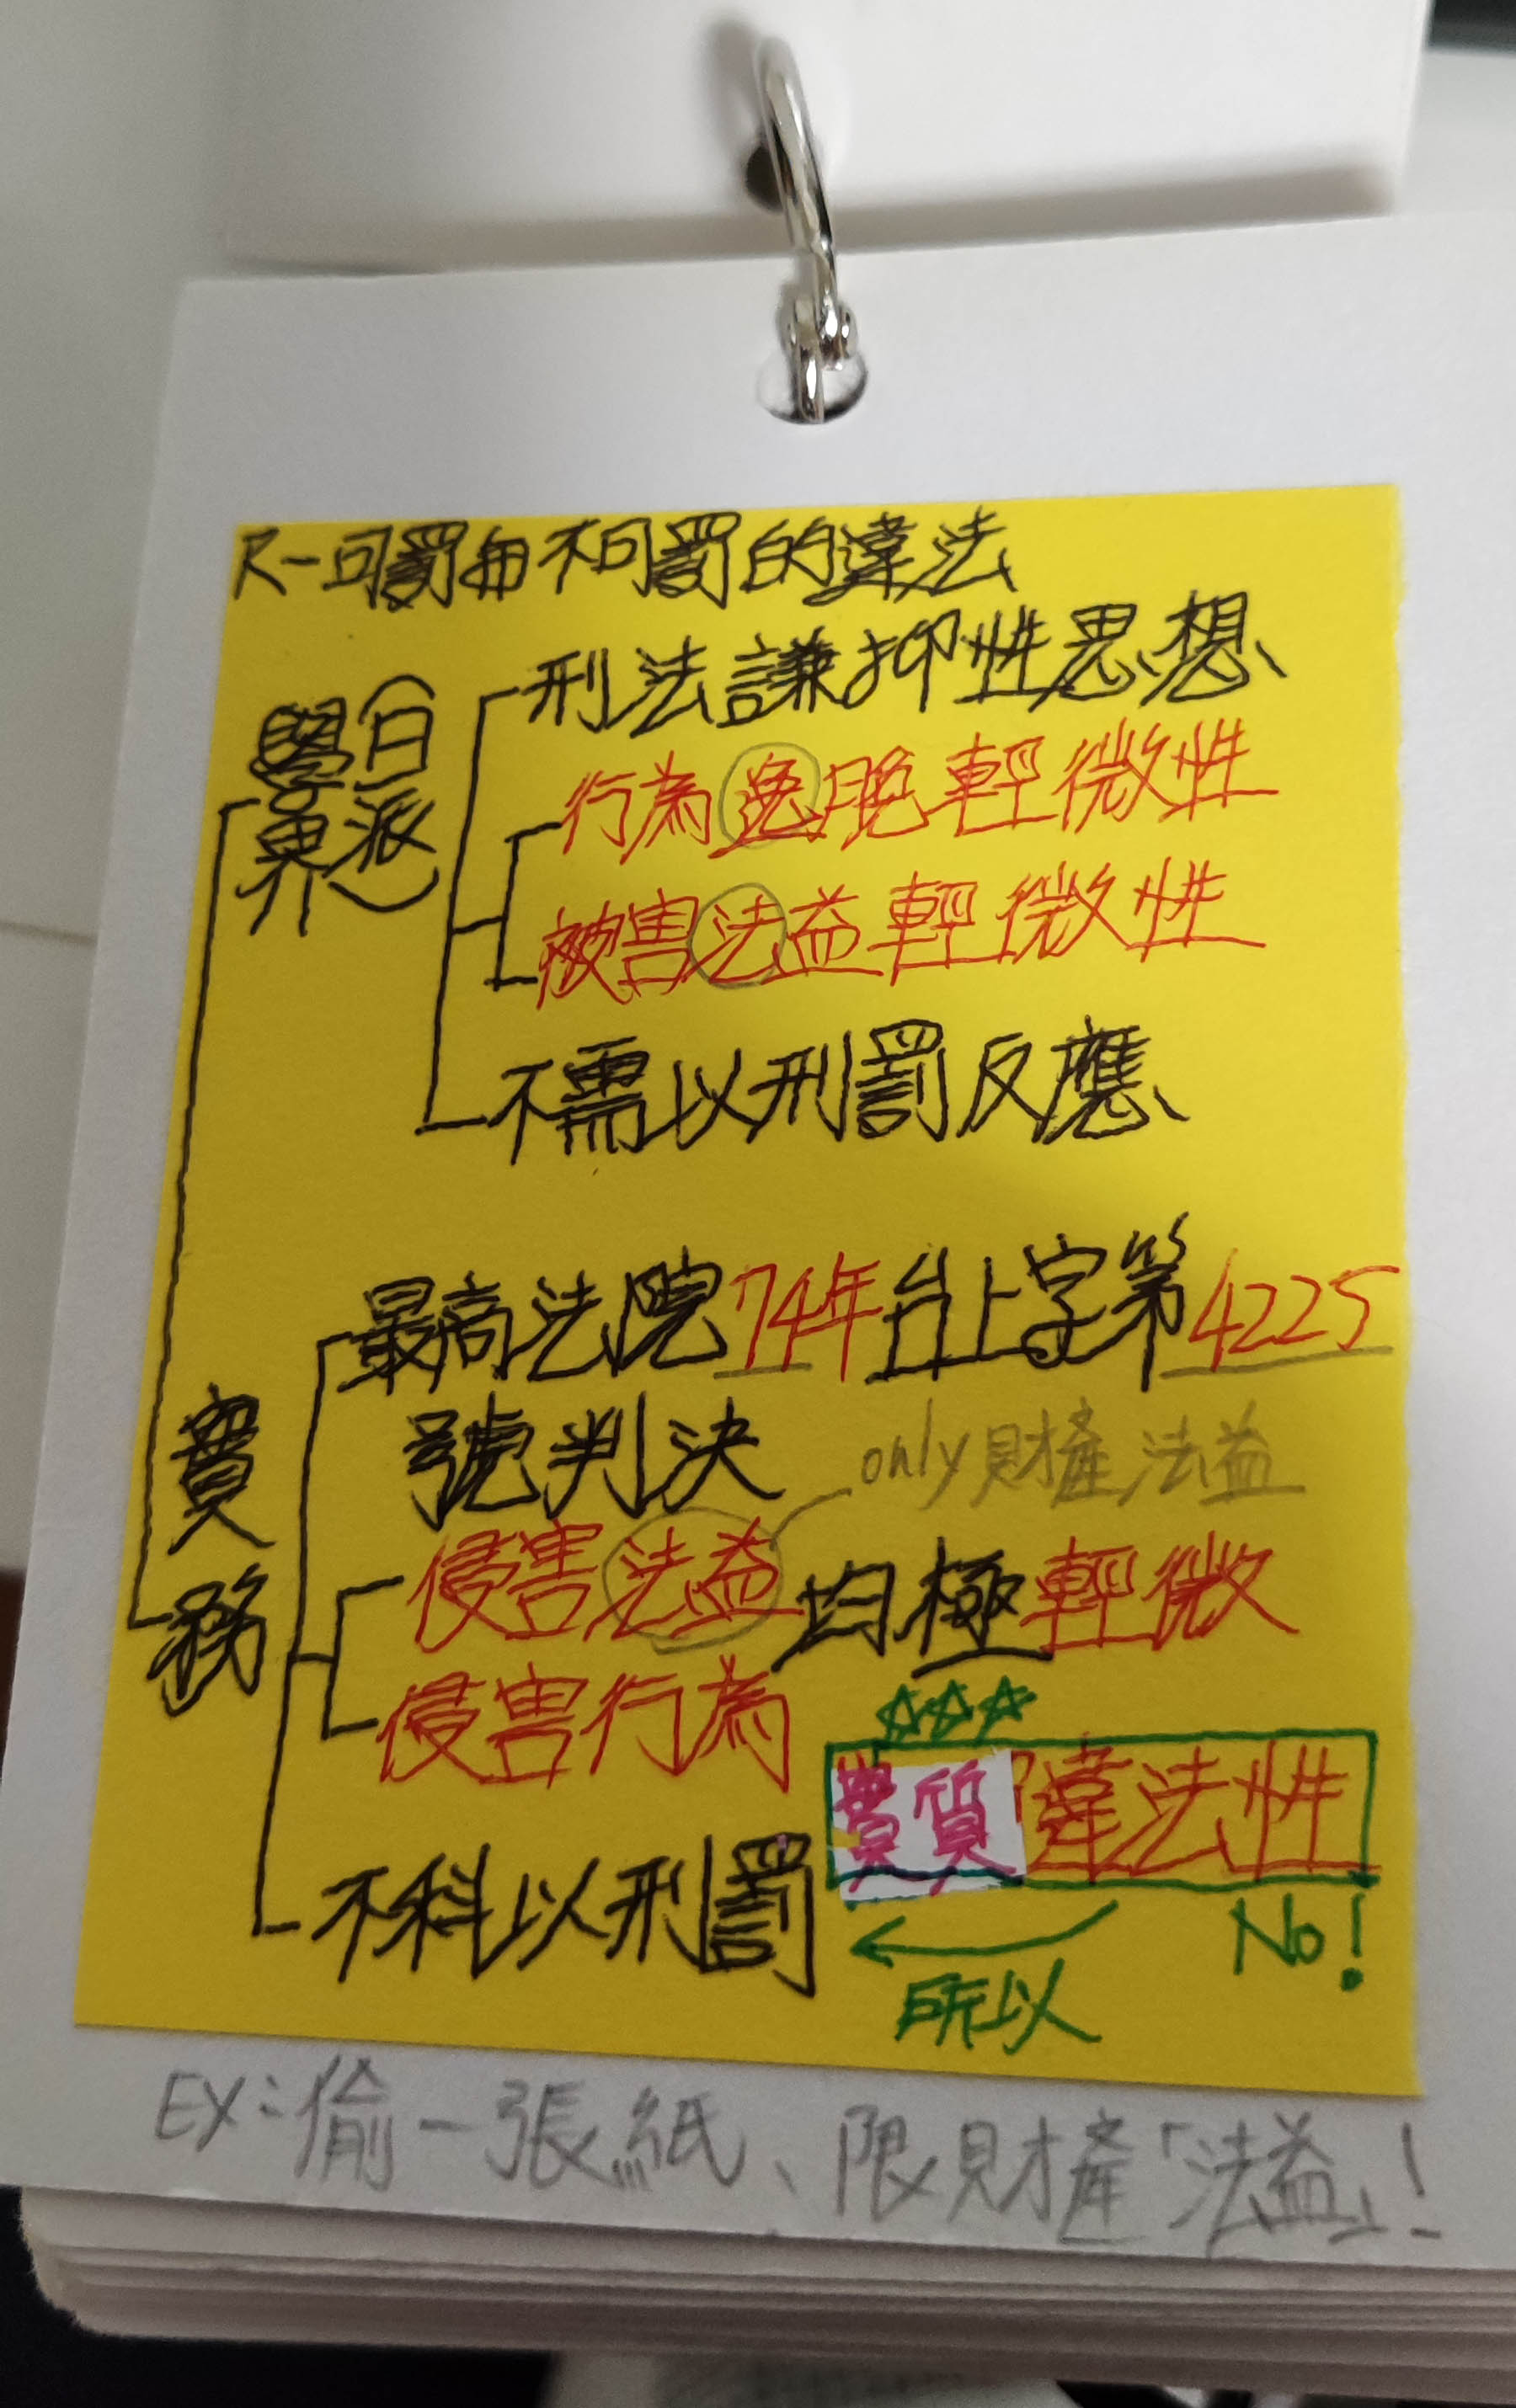 R-可罰與不可罰的違法
學界
(日派)
刑法謙抑性思想
行為逸脫輕微性
被害法益輕微性
不需以刑罰反應
實務
最高法院74年台上字第4225
號判決
only財產法益
侵害法益均極輕微
侵害行為
☆☆☆
實質違法性
不科以刑罰
No!
所以
EX:偷一張紙、限財產「法益」!